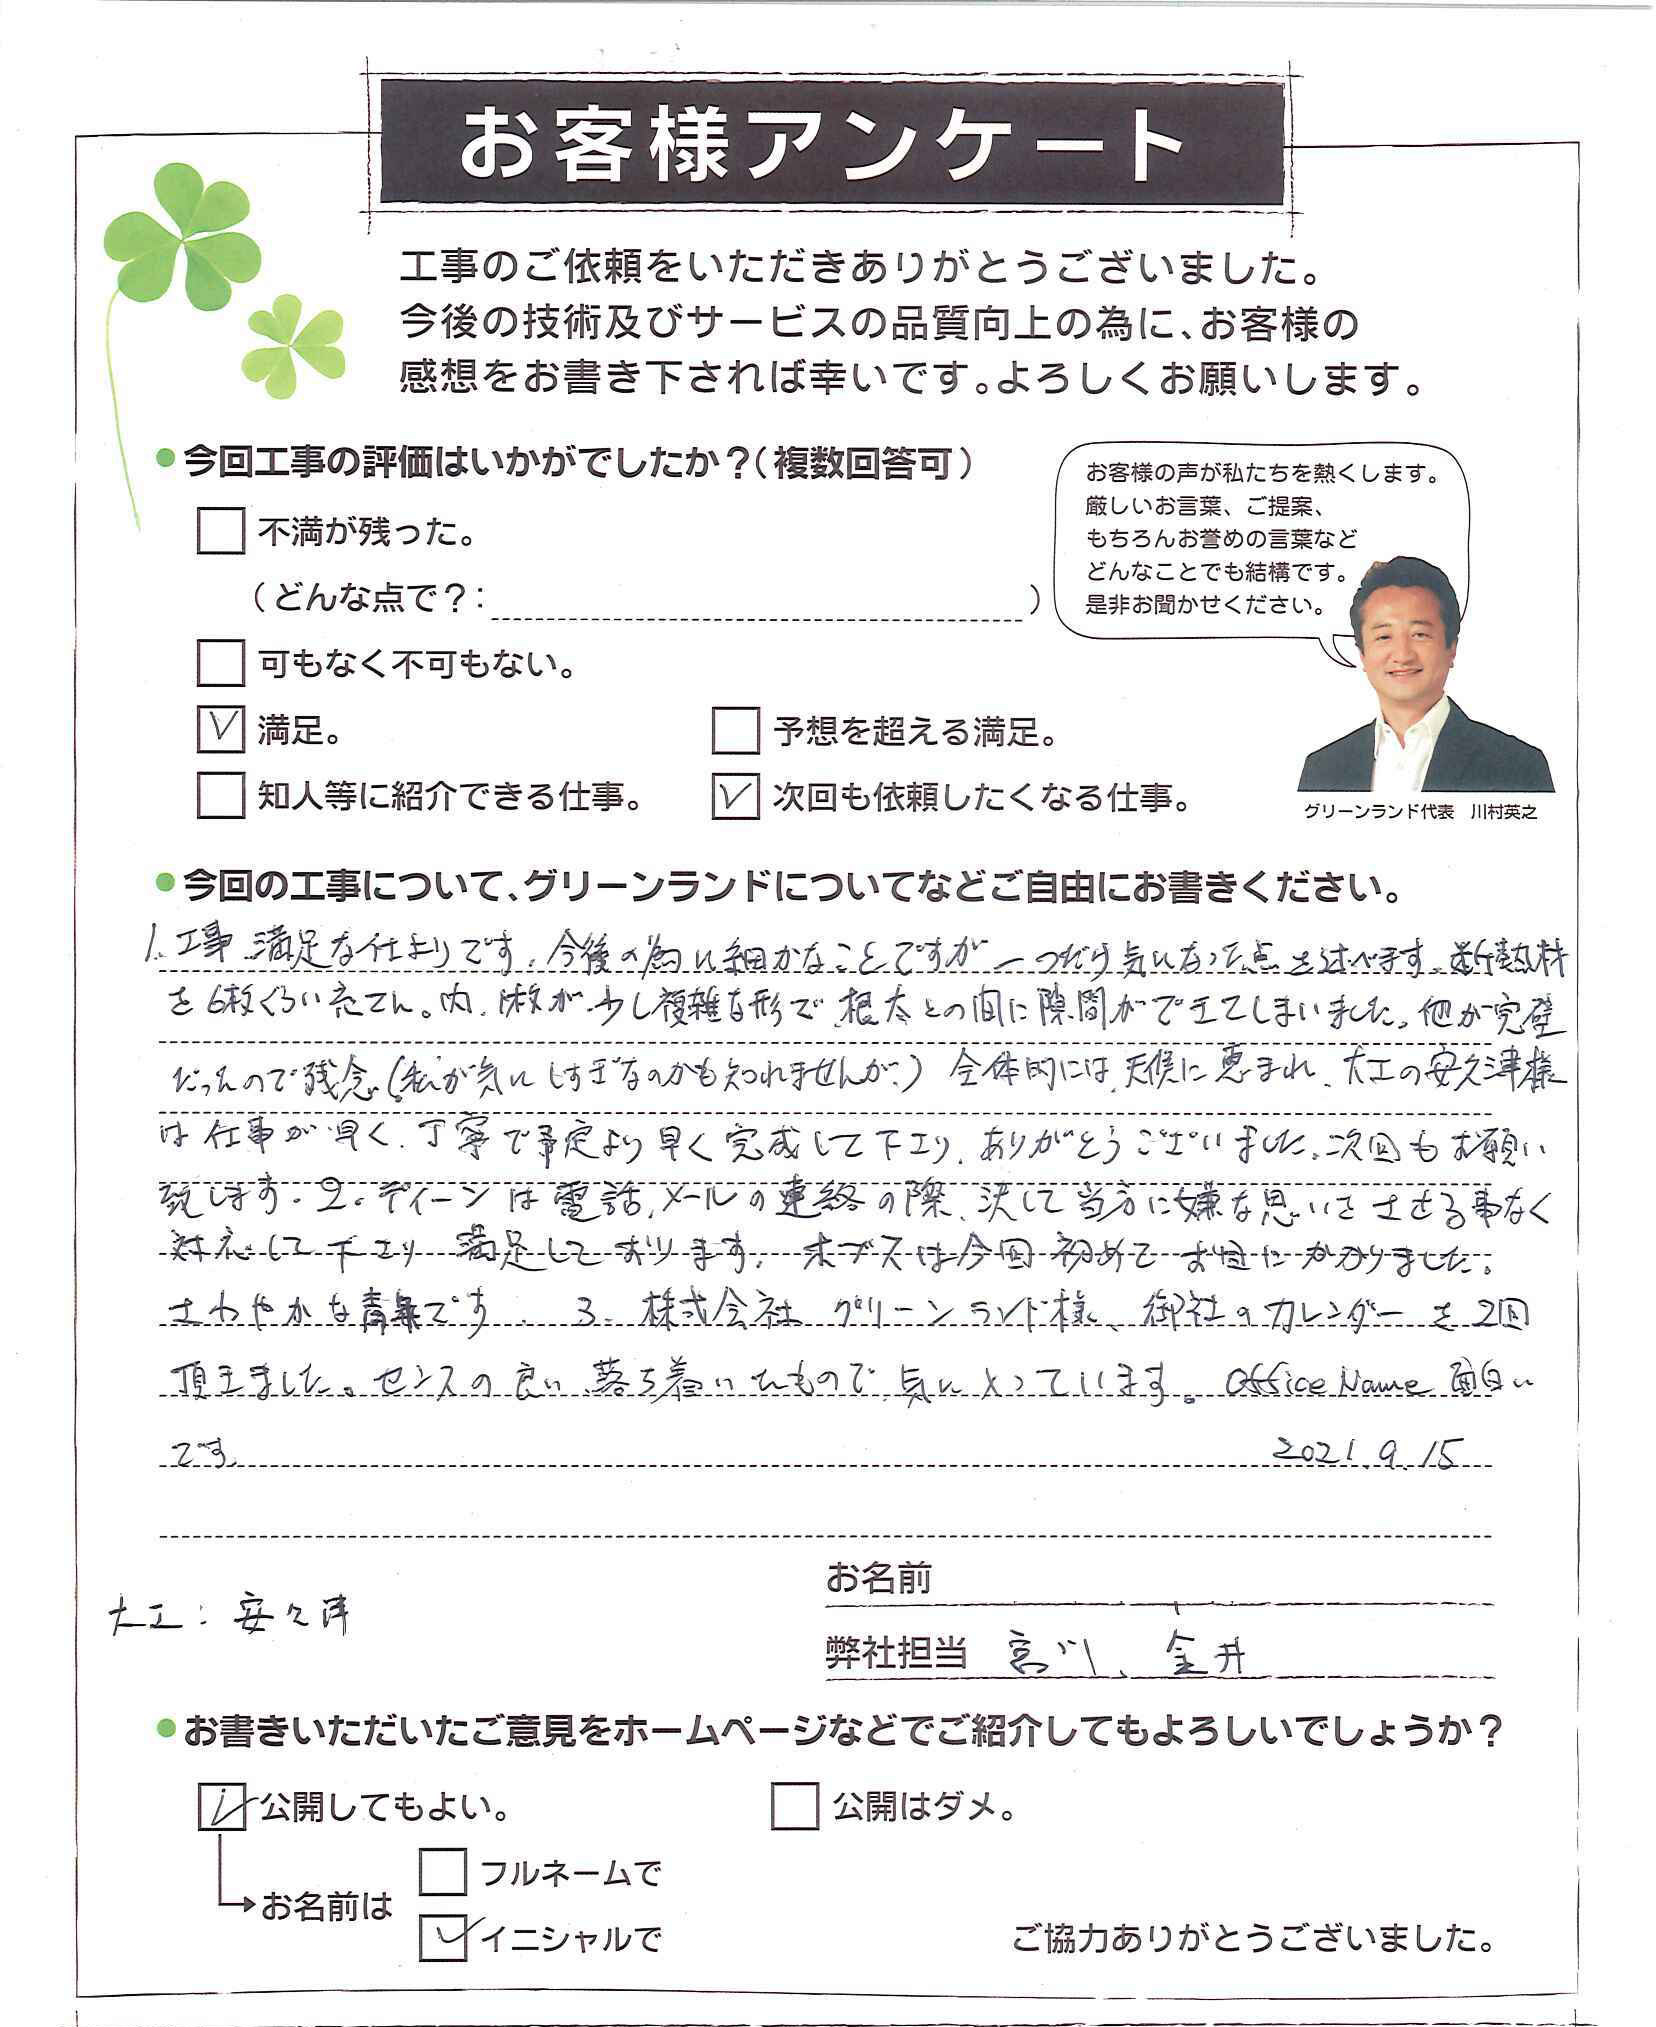 お客様アンケート
工事のご依頼をいただきありがとうございました。
今後の技術及びサービスの品質向上の為に、お客様の
感想をお書き下されば幸いです。よろしくお願いします。
●今回工事の評価はいかがでしたか？（複数回答可）
不満が残った。
（どんな点で？：　）
可もなく不可もない。
満足。
予想を超える満足。
知人等に紹介できる仕事。
次回も依頼したくなる仕事。
お客様の声が私たちを熱くします。
厳しいお言葉、ご提案、
もちろんお誉めの言葉など
どんなことでも結構です。
是非お聞かせください。
グリーンランド代表　川村英之
●今回の工事について、グリーンランドについてなどご自由にお書きください。
1. 工事 満足な仕上りです。今後の為に細かなことですが一つだけ気になった点を述べます。断熱材
を6枚くらい 内、1枚が少し複雑な形で根太との間に隙間ができてしまいました。他が完璧
だったので残念（私が気にしすぎなのかも知れませんが）全体的には天候に恵まれ、大工の安久津様
は仕事が早く、丁寧で予定より早く完成して下さり、ありがとうございました。次回もお願い
致します。2. ディーンは電話、メールの連絡の際、決して当方に嫌な思いをさせる事なく
対応して下さり 満足しております。ホブスは今回初めてお目にかかりました。
さわやかな青年です。3. 株式会社グリーンランド様、御社のカレンダーを2回
頂きました。センスの良い落ち着いたもので気に入っています。Office Name 面白い
です。 2021.9.15
お名前
大工：安久津
弊社担当 宮川、金井
●お書きいただいたご意見をホームページなどでご紹介してもよろしいでしょうか？
公開してもよい。
公開はダメ。
フルネームで
お名前は
イニシャルで
ご協力ありがとうございました。